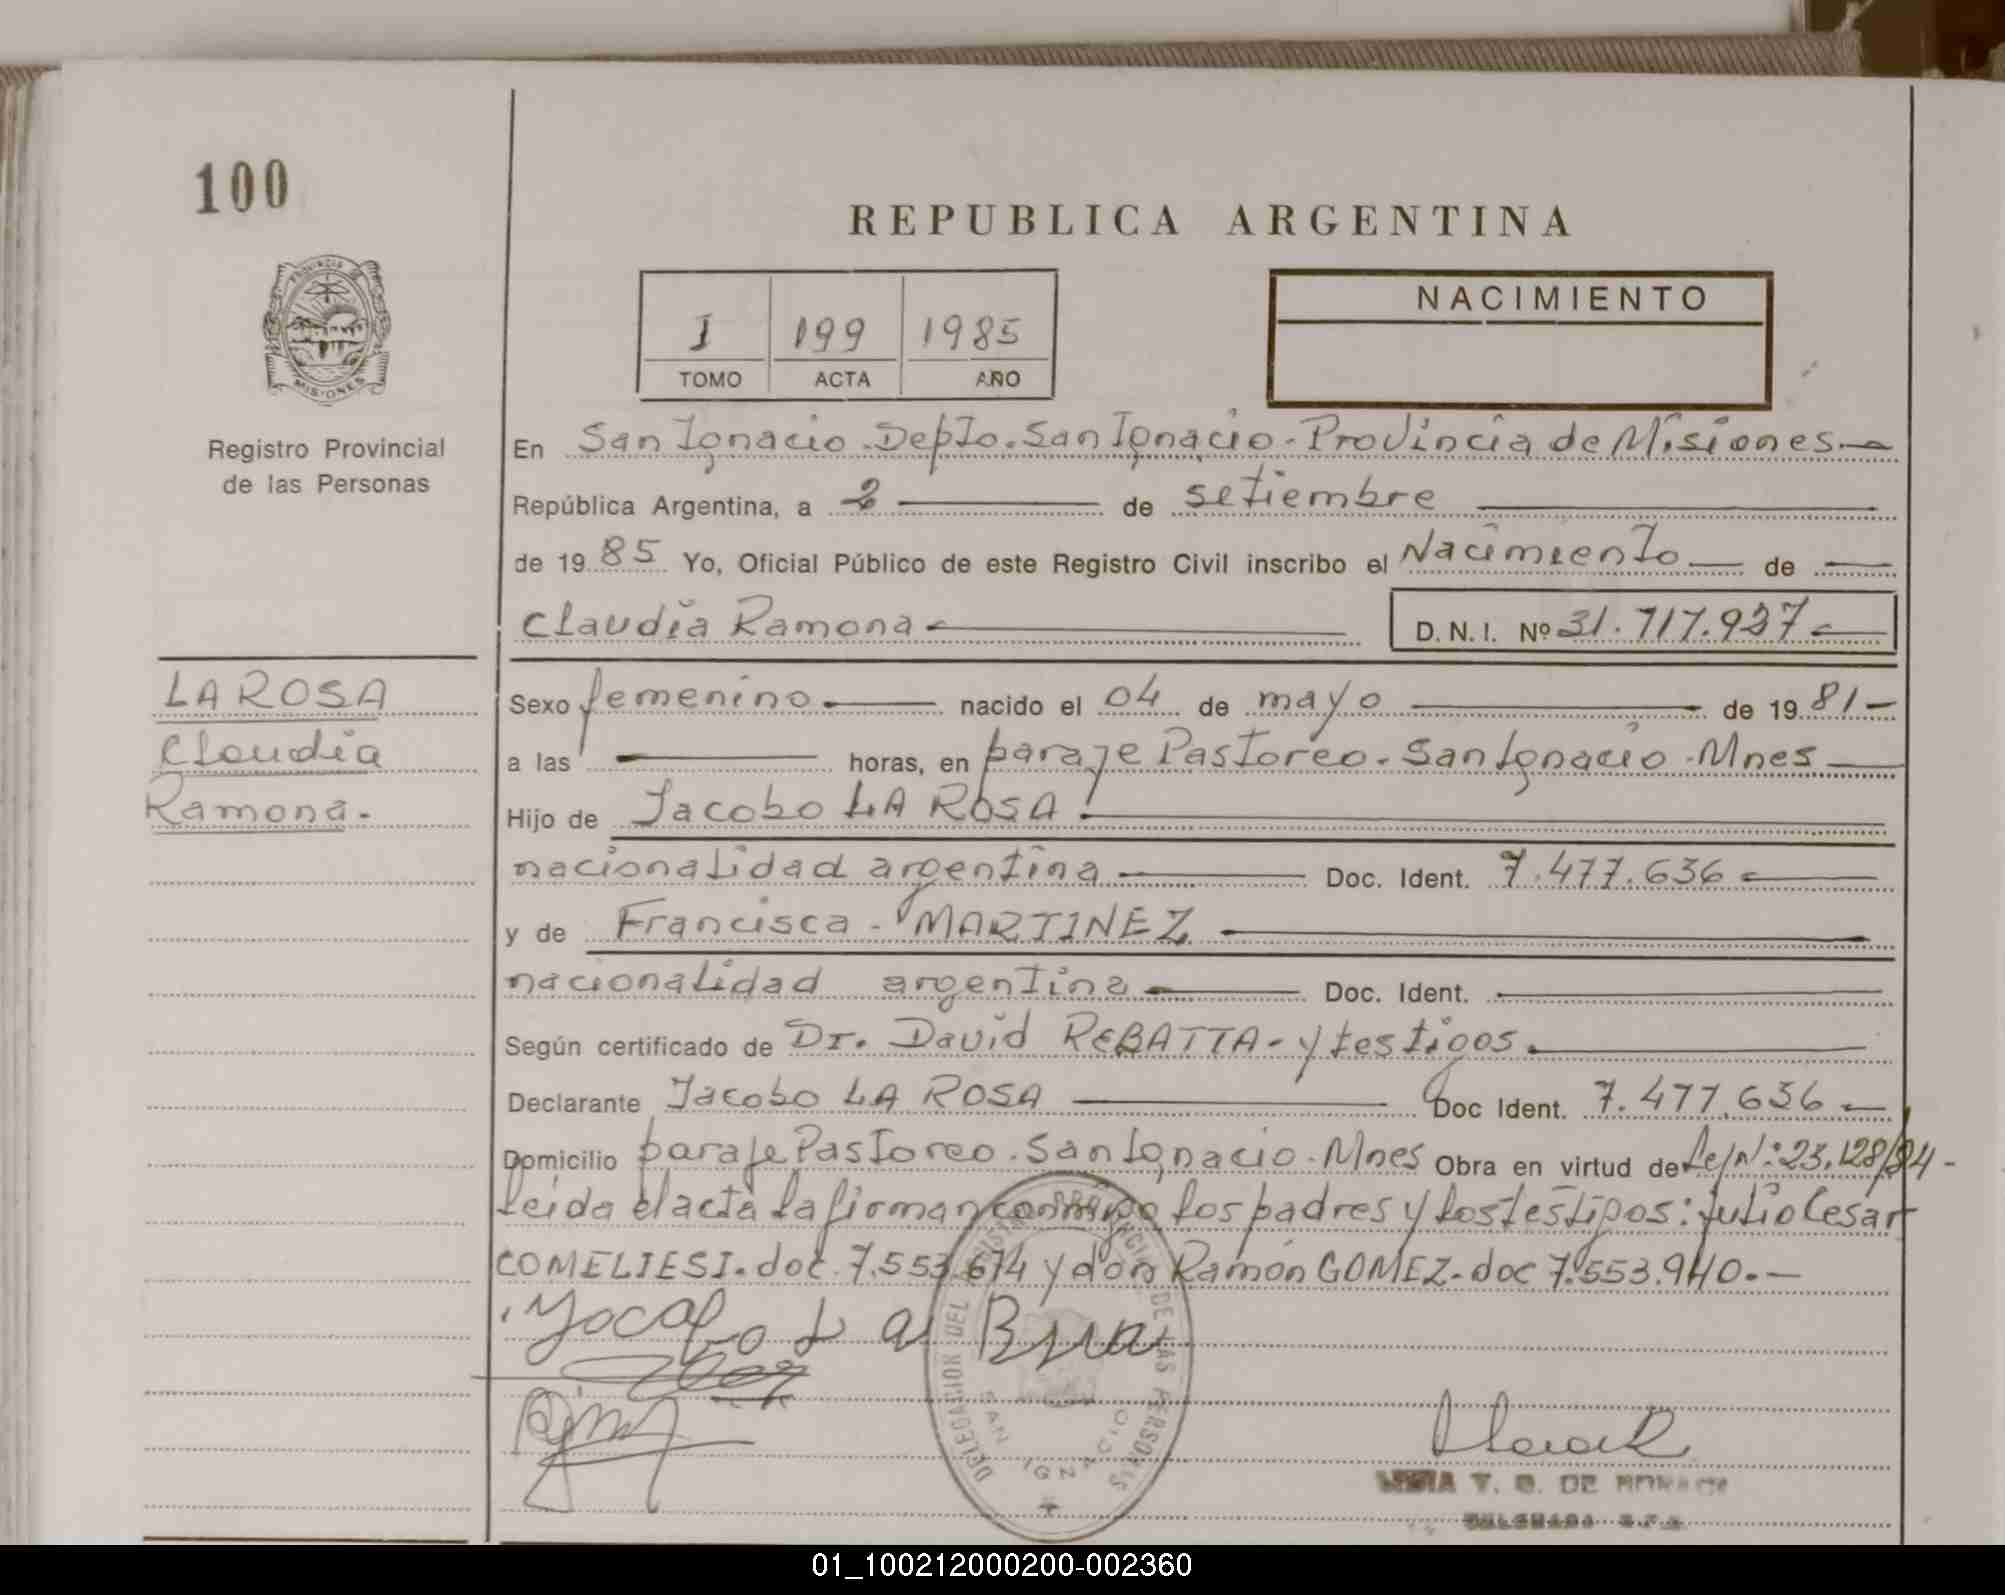 100
REPUBLICA ARGENTINA
PROVINCIA DE
MISIONES
I 199 1985
TOMO ACTA AÑO
NACIMIENTO
Registro Provincial
de las Personas
En San Ignacio. Depto. San Ignacio - Provincia de Misiones
República Argentina, a 2 de setiembre
de 19 85 Yo, Oficial Público de este Registro Civil inscribo el Nacimiento de
Claudia Ramona
D.N.I. Nº 31.717.927
LA ROSA
Claudia
Ramona.
Sexo femenino nacido el 04 de mayo de 19 81
a las horas, en paraje Pastoreo. San Ignacio. Mnes
Hijo de Jacobo LA ROSA
nacionalidad argentina Doc. Ident. 7.477.636
y de Francisca MARTINEZ
nacionalidad argentina Doc. Ident.
Según certificado de Dr. David REBATTA - y testigos.
Declarante Jacobo LA ROSA Doc Ident. 7.477.636
Domicilio paraje Pastoreo. San Ignacio. Mnes Obra en virtud de Ley Nº: 23.128/84 -
leida el acta la firman conmigo los padres y los testigos: Julio Cesar
COMELIESI. doc. 7.553.674 y don Ramón GOMEZ. doc 7.553.940.
DELEGACION DEL REGISTRO PROVINCIAL DE LAS PERSONAS
SAN IGNACIO
T. B. DE
01_100212000200-002360